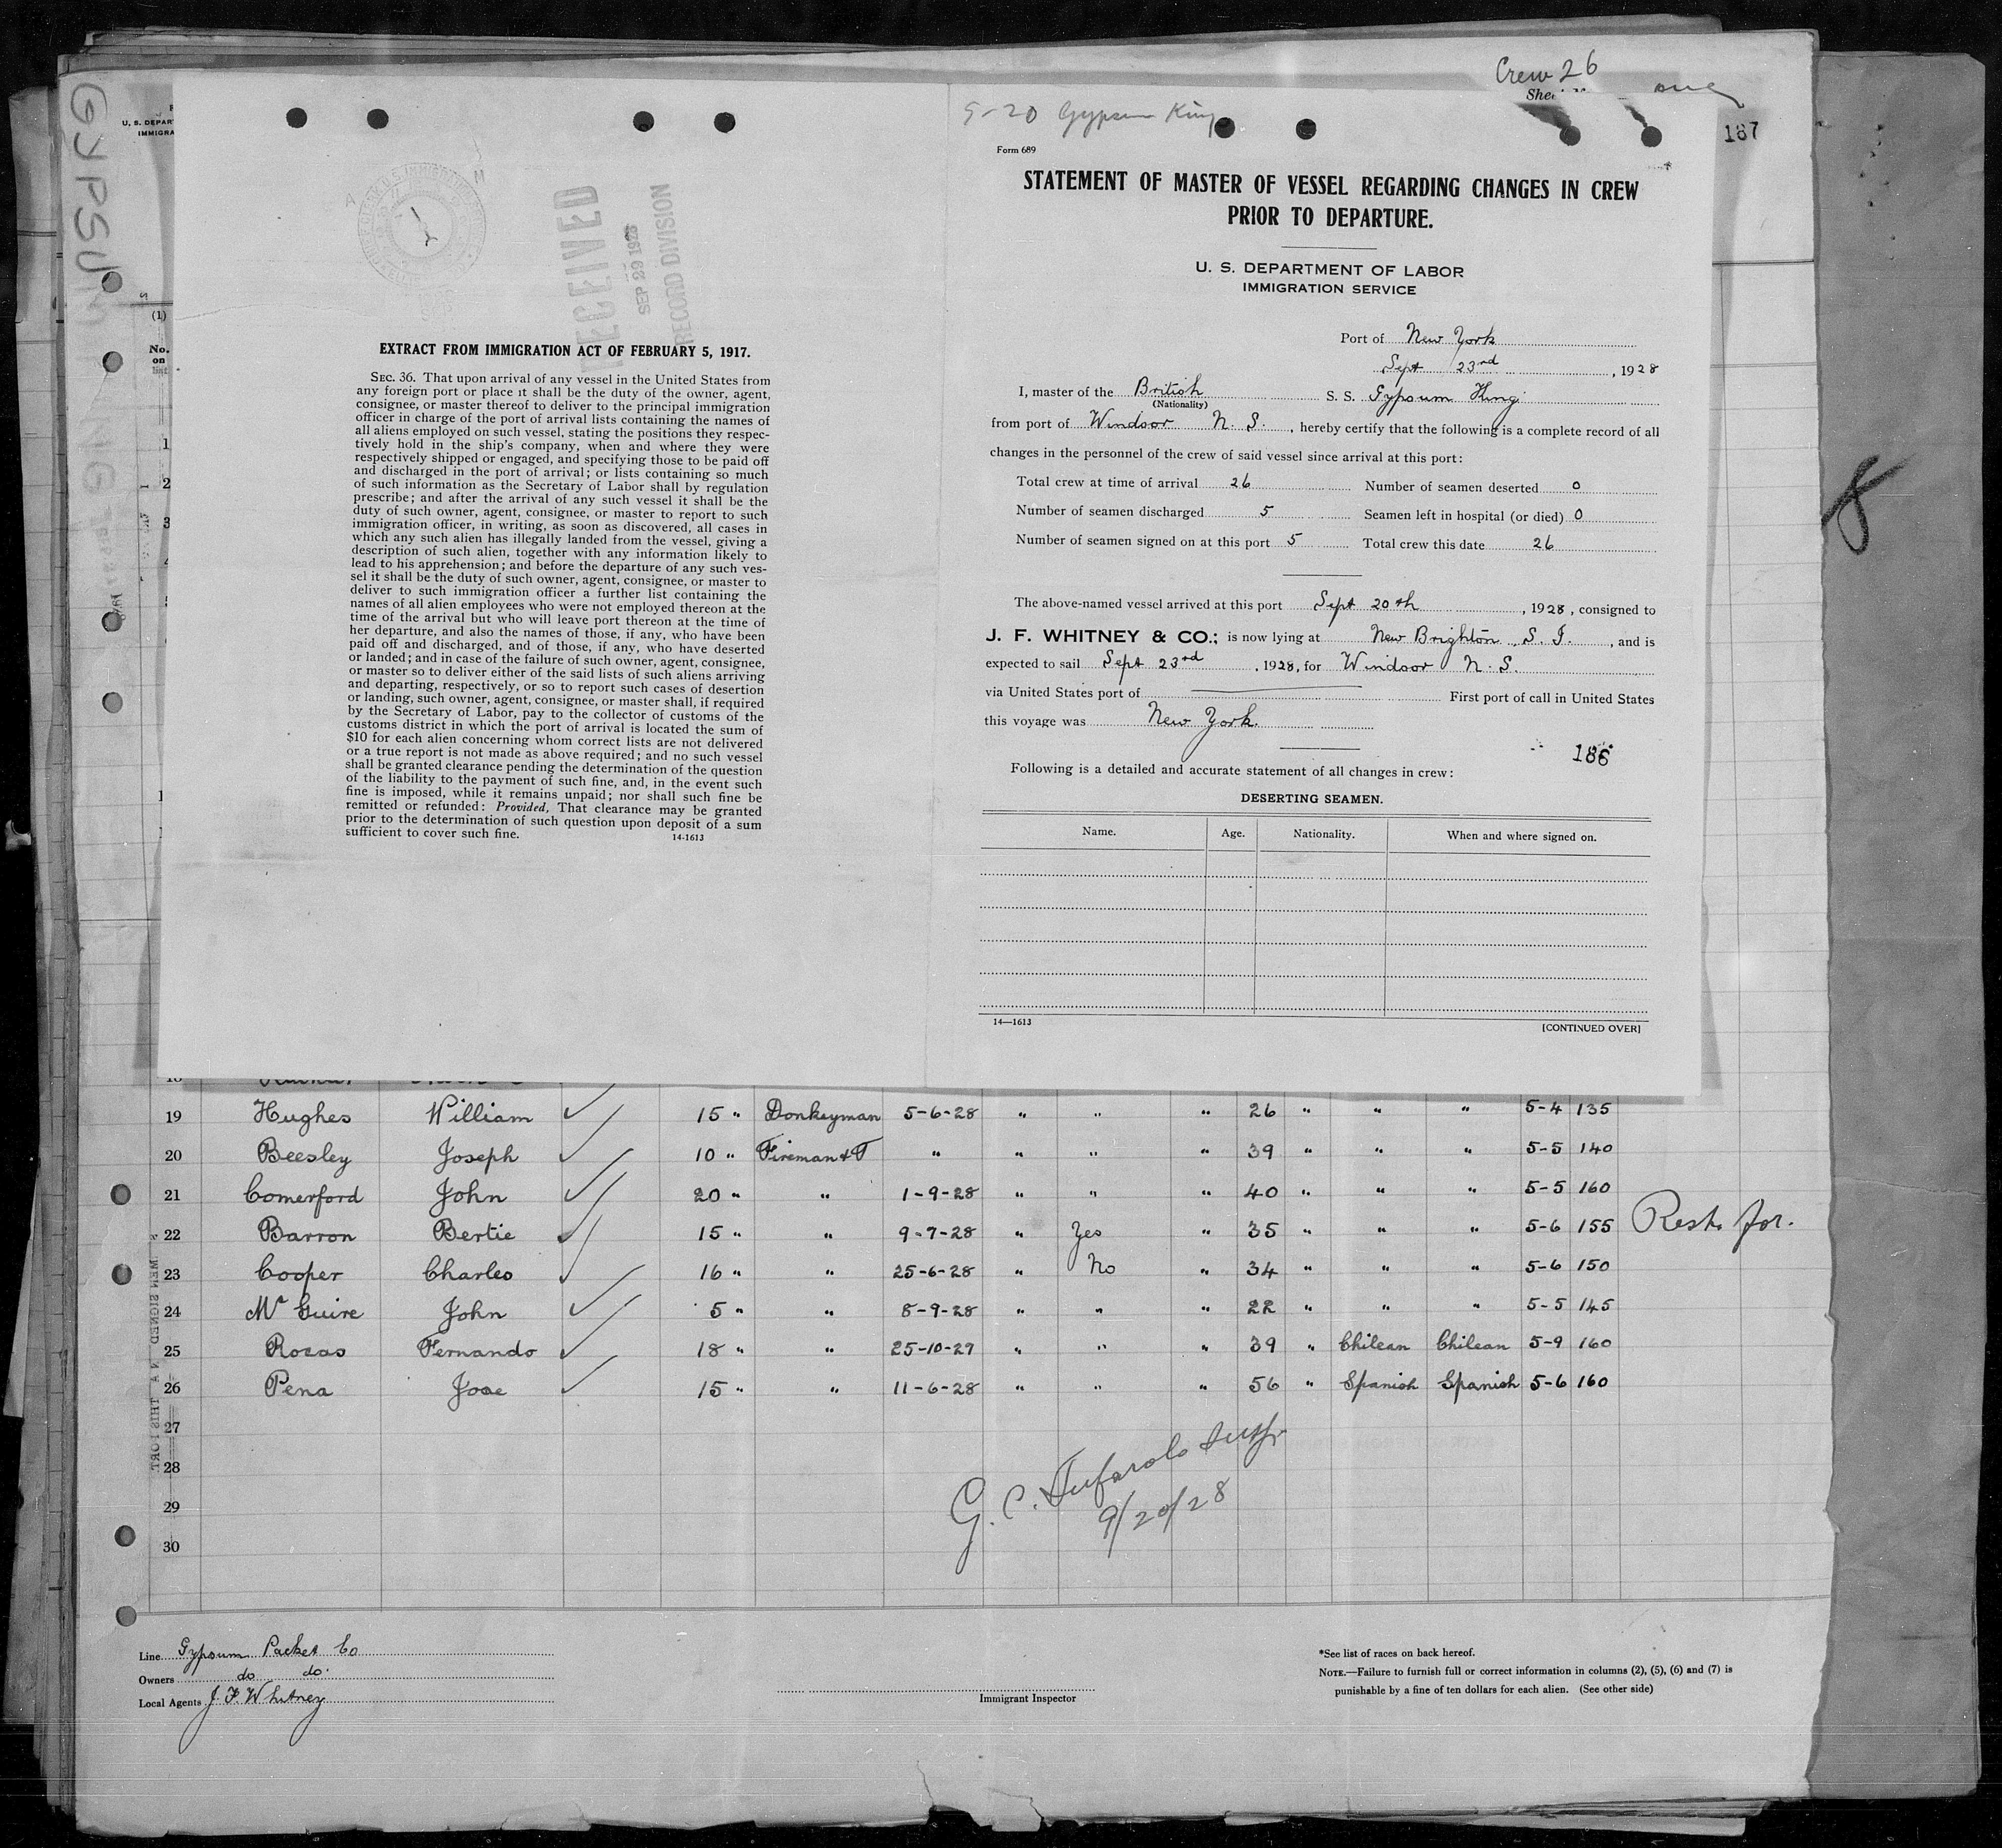 Crew 26
9-20 Gypsum King
187
GYPSUM KING
U. S. DEPAR
IMMIGRA
RECEIVED
SEP 29 1928
RECORD DIVISION
EXTRACT FROM IMMIGRATION ACT OF FEBRUARY 5, 1917.
SEC. 36. That upon arrival of any vessel in the United States from
any foreign port or place it shall be the duty of the owner, agent,
consignee, or master thereof to deliver to the principal immigration
officer in charge of the port of arrival lists containing the names of
all aliens employed on such vessel, stating the positions they respec-
tively hold in the ship's company, when and where they were
respectively shipped or engaged, and specifying those to be paid off
and discharged in the port of arrival; or lists containing so much
of such information as the Secretary of Labor shall by regulation
prescribe; and after the arrival of any such vessel it shall be the
duty of such owner, agent, consignee, or master to report to such
immigration officer, in writing, as soon as discovered, all cases in
which any such alien has illegally landed from the vessel, giving a
description of such alien, together with any information likely to
lead to his apprehension; and before the departure of any such ves-
sel it shall be the duty of such owner, agent, consignee, or master to
deliver to such immigration officer a further list containing the
names of all alien employees who were not employed thereon at the
time of the arrival but who will leave port thereon at the time of
her departure, and also the names of those, if any, who have been
paid off and discharged, and of those, if any, who have deserted
or landed; and in case of the failure of such owner, agent, consignee,
or master so to deliver either of the said lists of such aliens arriving
and departing, respectively, or so to report such cases of desertion
or landing, such owner, agent, consignee, or master shall, if required
by the Secretary of Labor, pay to the collector of customs of the
customs district in which the port of arrival is located the sum of
$10 for each alien concerning whom correct lists are not delivered
or a true report is not made as above required; and no such vessel
shall be granted clearance pending the determination of the question
of the liability to the payment of such fine, and, in the event such
fine is imposed, while it remains unpaid; nor shall such fine be
remitted or refunded: Provided, That clearance may be granted
prior to the determination of such question upon deposit of a sum
sufficient to cover such fine. 14-1613
Form 689
STATEMENT OF MASTER OF VESSEL REGARDING CHANGES IN CREW
PRIOR TO DEPARTURE.
U. S. DEPARTMENT OF LABOR
IMMIGRATION SERVICE
Port of New York
Sept 23rd, 1928
I, master of the British S. S. Gypsum King
(Nationality)
from port of Windsor N. S., hereby certify that the following is a complete record of all
changes in the personnel of the crew of said vessel since arrival at this port:
Total crew at time of arrival 26 Number of seamen deserted 0
Number of seamen discharged 5 Seamen left in hospital (or died) 0
Number of seamen signed on at this port 5 Total crew this date 26
The above-named vessel arrived at this port Sept 20th, 1928, consigned to
J. F. WHITNEY & CO.; is now lying at New Brighton S. I., and is
expected to sail Sept 23rd, 1928, for Windsor N. S.
via United States port of First port of call in United States
this voyage was New York.
186
Following is a detailed and accurate statement of all changes in crew:
DESERTING SEAMEN.
Name. Age. Nationality. When and where signed on.
14—1613 [CONTINUED OVER]
8
(1)
No.
on
list
19 Hughes William 15 " Donkeyman 5-6-28 " " " 26 " " " 5-4 135
20 Beesley Joseph 10 " Fireman & T " " " " 39 " " " 5-5 140
21 Comerford John 20 " " 1-9-28 " " " 40 " " " 5-5 160
22 Barron Bertie 15 " " 9-7-28 " Yes " 35 " " " 5-6 155
23 Cooper Charles 16 " " 25-6-28 " No " 34 " " " 5-6 150
24 Mc Guire John 5 " " 8-9-28 " " " 22 " " " 5-5 145
25 Rosas Fernando 18 " " 25-10-27 " " " 39 " Chilean Chilean 5-9 160
26 Pena Jose 15 " " 11-6-28 " " " 56 " Spanish Spanish 5-6 160
27
28
29
30
G. C.
9/20/28
Line Gypsum Packet Co
Owners do do.
Local Agents J. F. Whitney
Immigrant Inspector
*See list of races on back hereof.
NOTE.—Failure to furnish full or correct information in columns (2), (5), (6) and (7) is
punishable by a fine of ten dollars for each alien. (See other side)